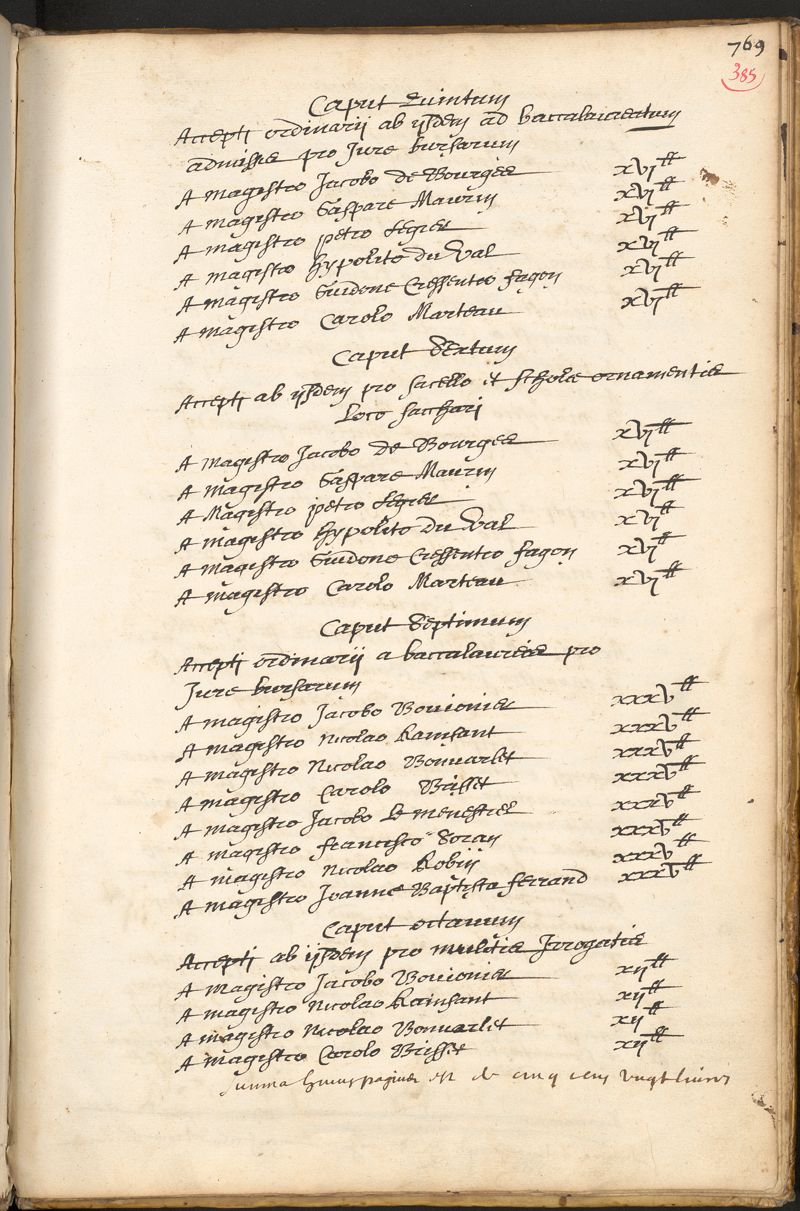 769
385
Caput Quintum
Accepti ordinarij ab ijsdem ad baccalaureatum
admissis pro Jure bursarum
A magistro Jacobo de Bourges xvi ₶
A magistro Gaspare Maurin xvi ₶
A magistro petro Legier xvi ₶
A magistro hypolito du Val xvi ₶
A magistro Guidone Cressentio fagon xvi ₶
A magistro Carolo Marteau xvi ₶
Caput Sextum
Accepti ab ijsdem pro sacello et scholæ ornamentis
Loco sacchari
A magistro Jacobo de Bourges xvi ₶
A magistro Gaspare Maurin xvi ₶
A Magistro petro Legier xvi ₶
A magistro hypolito du Val xvi ₶
A magistro Guidone Cressentio fagon xvi ₶
A magistro Carolo Marteau xvi ₶
Caput Septimum
Accepti ordinarij a baccalaureis pro
Jure bursarum
A magistro Jacobo Bouionier xxxv ₶
A magistro Nicolao Rainsant xxxv ₶
A magistro Nicolao Bonuarlet xxxv ₶
A magistro Carolo Brisset xxxv ₶
A magistro Jacobo Le menestrel xxxv ₶
A magistro francisco Soran xxxv ₶
A magistro Nicolao Robin xxxv ₶
A magistro Joanne Baptista ferrand xxxv ₶
Caput octauum
Accepti ab ijsdem pro mulctis Irrogatis
A magistro Jacobo Bouionier xij ₶
A magistro Nicolao Rainsant xij ₶
A magistro Nicolao Bonuarlet xij ₶
A magistro Carolo Brisset xij ₶
Summa huius paginæ est de cinq cens vingt liures